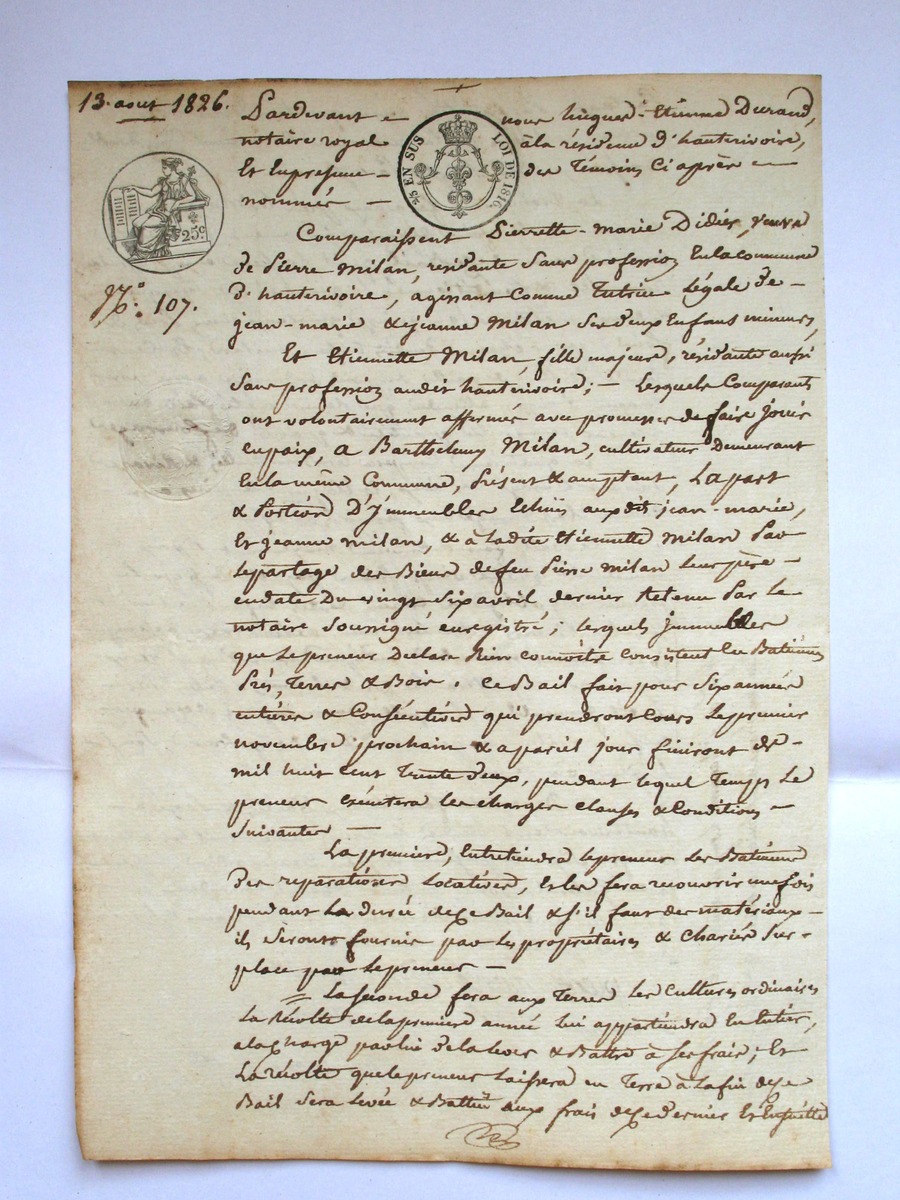 13. aout 1826.
Pardevant nous hugues-Etienne Durand,
notaire royal à la résidence d'hauterivoire,
Et En presence des Témoins Ci après
nommés
2/5 EN SUS LOI DE 1816.
25c
N.o 107.
Comparaissent Pierrette-marie Didier, veuve
de Pierre Milan, résidante Sans profession En la commune
d'hauterivoire, agissant Comme Tutrice Légale de
jean-marie & jeanne Milan Ses deux Enfans mineurs,
Et Etiennette Milan, fille majeure, résidante aussi
Sans profession audit hauterivoire; Lesquels Comparants
ont volontairement affermé avec promesse de faire jouir
en paix, a Barthelemy Milan, cultivateur Demeurant
En la même Commune, Présent & acceptant, La part
& Portion D'Jmmeubles Echus auxdits jean-marie,
Et jeanne milan, & à Ladite Etiennette Milan Par
Le partage des Biens de feu Pierre Milan Leur père
en date Du vingt Six avril dernier Retenu Par Le
notaire Soussigné enregistré; Lesquels jmmeubles
que Le preneur Declare Bien connoître Consistent En Batimens
Prés, Terres & Bois. Ce Bail fait pour Six années
entières & Consécutives qui prendront Cours Le premier
novembre prochain & a pareil jour finiront de
mil huit cent Trente deux, pendant lequel Temps Le
preneur Exécutera les charges clauses & Conditions
Suivantes
La première, Entretiendra Le preneur Les Batimens
Des reparations Locatives, Et les fera recouvrir une fois
pendant La durée de Ce Bail & S'il faut des matériaux
ils Seront fournis par Les propriétaires & Chariés Sur
place par Le preneur
La Seconde fera aux Terres Les Cultures ordinaires
La Récolte de La première année Lui appartiendra En Entier,
a La Charge par lui de La lever & Battre à Ses frais; Et
La récolte que Le preneur Laissera en Terre à La fin de Ce
Bail Sera Levée & Battue aux frais de Ce dernier Et Ensuitte